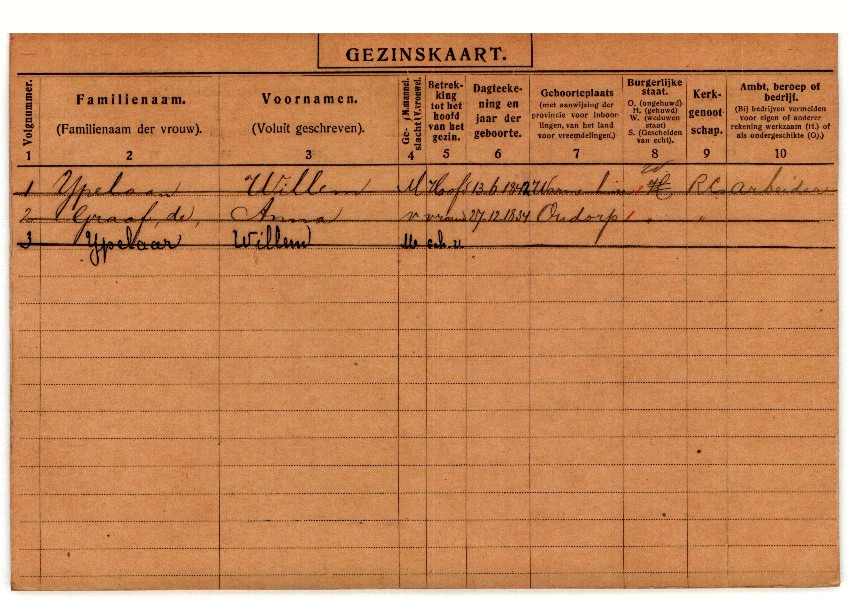 GEZINSKAART.
Volgnummer. Familienaam. (Familienaam der vrouw). Voornamen. (Voluit geschreven). Ge- (M. mannel. slacht (V. vrouwel. Betrek- king tot het hoofd van het gezin. Dagteeke- ning en jaar der geboorte. Geboorteplaats (met aanwijzing der provincie voor inboor- lingen, van het land voor vreemdelingen.) Burgerlijke staat. O. (ongehuwd) H. (gehuwd) W. (weduwen staat) S. (Gescheiden van echt). Kerk- genoot- schap. Ambt, beroep of bedrijf. (Bij bedrijven vermelden voor eigen of anderer rekening werkzaam (H.) of als ondergeschikte (O.).)
1 2 3 4 5 6 7 8 9 10
W
1 Ypelaan Willem M Hoofd 13.6.1842 Warmenhuizen H R.C. arbeider
2 Graaf, de, Anna v vrouw 27.12.1834 Oudorp " "
3 Ypelaar Willem M